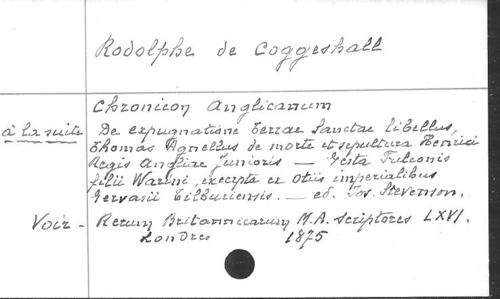 Rodolphe de Coggeshall
Chronicon Anglicanum
à la suite De expugnatione Terrae Sanctae libellus,
Thomas Agnellus de morte et sepultura Henrici
Regis Angliae junioris — Gesta Fulconis
filii Warini, excepta ex Otiis imperialibus
Gervasii Tilburiensis. — ed. Jos. Stevenson.
Voir - Rerum Britannicarum M.A. Scriptores LXVI.
Londres 1875